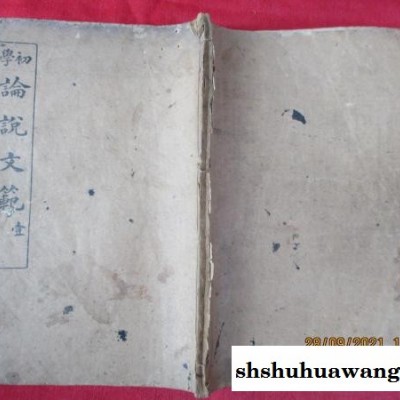 初學
論說文範
壹
29/09/2021 1
shshuhuawang